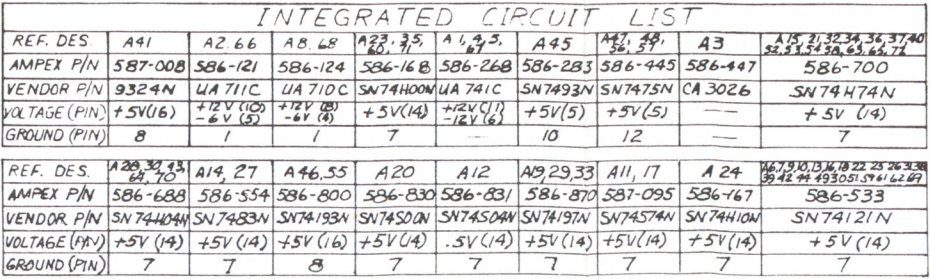 INTEGRATED CIRCUIT LIST
REF. DES. A41 A2,66 A8,68 A23,35,60,71 A1,4,5,67 A45 A47,48,56,57 A3 A15,21,32,34,36,37,40 52,53,54,58,63,65,72
AMPEX P/N 587-008 586-121 586-124 586-168 586-268 586-283 586-445 586-447 586-700
VENDOR P/N 9324N UA711C UA710C SN74H00N UA741C SN7493N SN7475N CA3026 SN74H74N
VOLTAGE (PIN) +5V(16) +12V(10) -6V(5) +12V(8) -6V(4) +5V(14) +12V(11) -12V(6) +5V(5) +5V(5) — +5V (14)
GROUND (PIN) 8 1 1 7 — 10 12 — 7
REF. DES. A14,27 A46,55 A20 A12 A19,29,33 A11,17 A24
AMPEX P/N 586-688 586-554 586-800 586-830 586-831 586-870 587-095 586-167 586-533
VENDOR P/N SN74H04N SN7483N SN74193N SN74S00N SN74S04N SN74197N SN74S74N SN74H10N SN74121N
VOLTAGE (PIN) +5V (14) +5V (14) +5V (16) +5V (14) .5V (14) +5V (14) +5V (14) +5V (14) +5V (14)
GROUND (PIN) 7 7 8 7 7 7 7 7 7